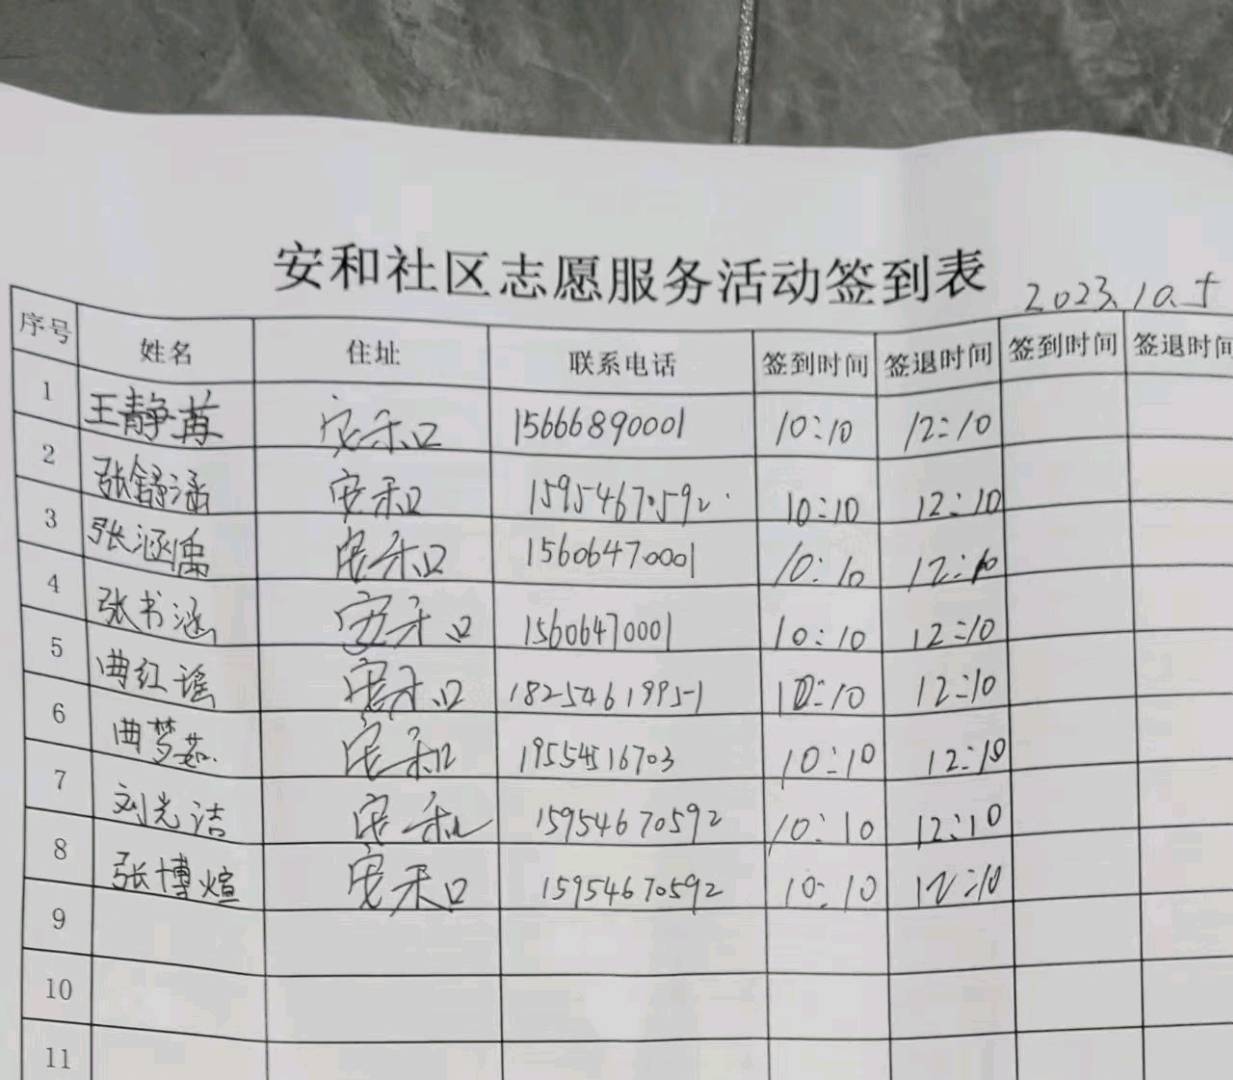 安和社区志愿服务活动签到表
2023.10.5
序号 姓名 住址 联系电话 签到时间 签退时间 签到时间 签退时间
1 王静苒 安和 15666890001 10:10 12:10
2 张舒涵 安和 15954670592 10:10 12:10
3 张涵禹 安和 15606470001 10:10 12:10
4 张书涵 安和 15606470001 10:10 12:10
5 曲红瑶 安和 18254619951 10:10 12:10
6 曲梦茹 安和 19554516703 10:10 12:10
7 刘光洁 安和 15954670592 10:10 12:10
8 张博煊 安和 15954670592 10:10 12:10
9
10
11